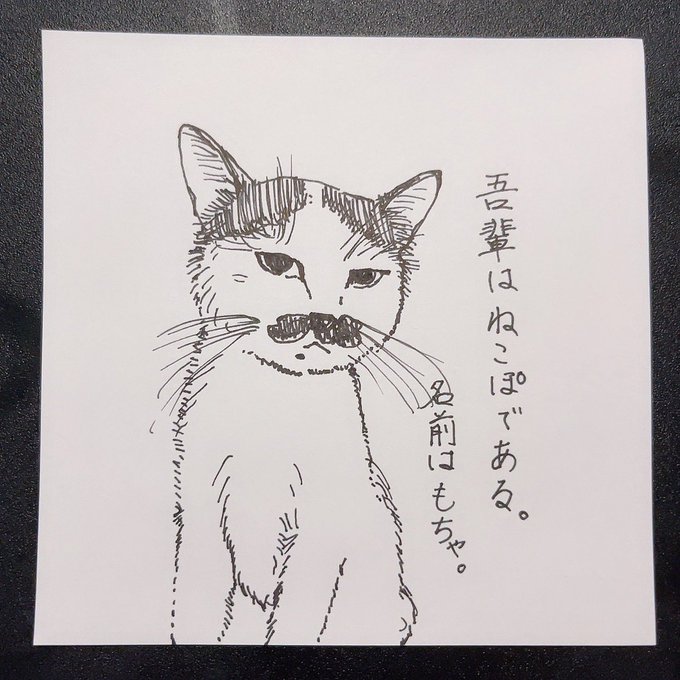 吾輩はねこぽである。
名前はもちゃ。